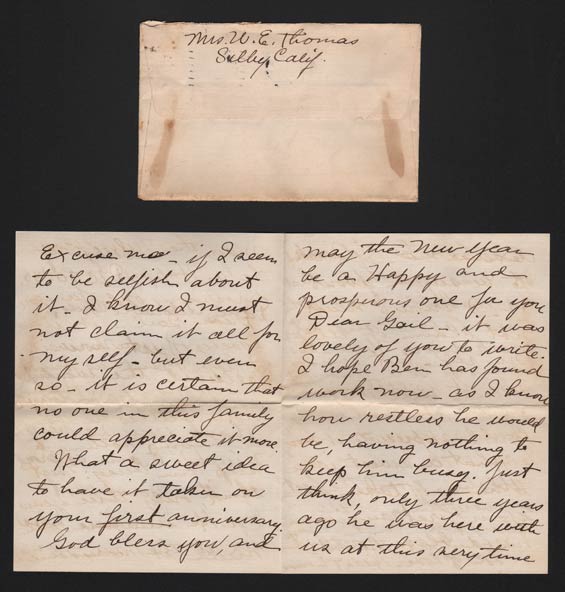 Mrs. W. E. Thomas
Selby, Calif.
Excuse me - if I seem
to be selfish about
it - I know I must
not claim it all for
my self - but even
so - it is certain that
no one in this family
could appreciate it more.
What a sweet idea
to have it taken on
your first anniversary.
God bless you, and
may the New Year
be a Happy and
prosperous one for you
Dear Gail - it was
lovely of you to write.
I hope Ben has found
work now - as I know
how restless he would
be, having nothing to
keep him busy. Just
think, only three years
ago he was here with
us at this very time